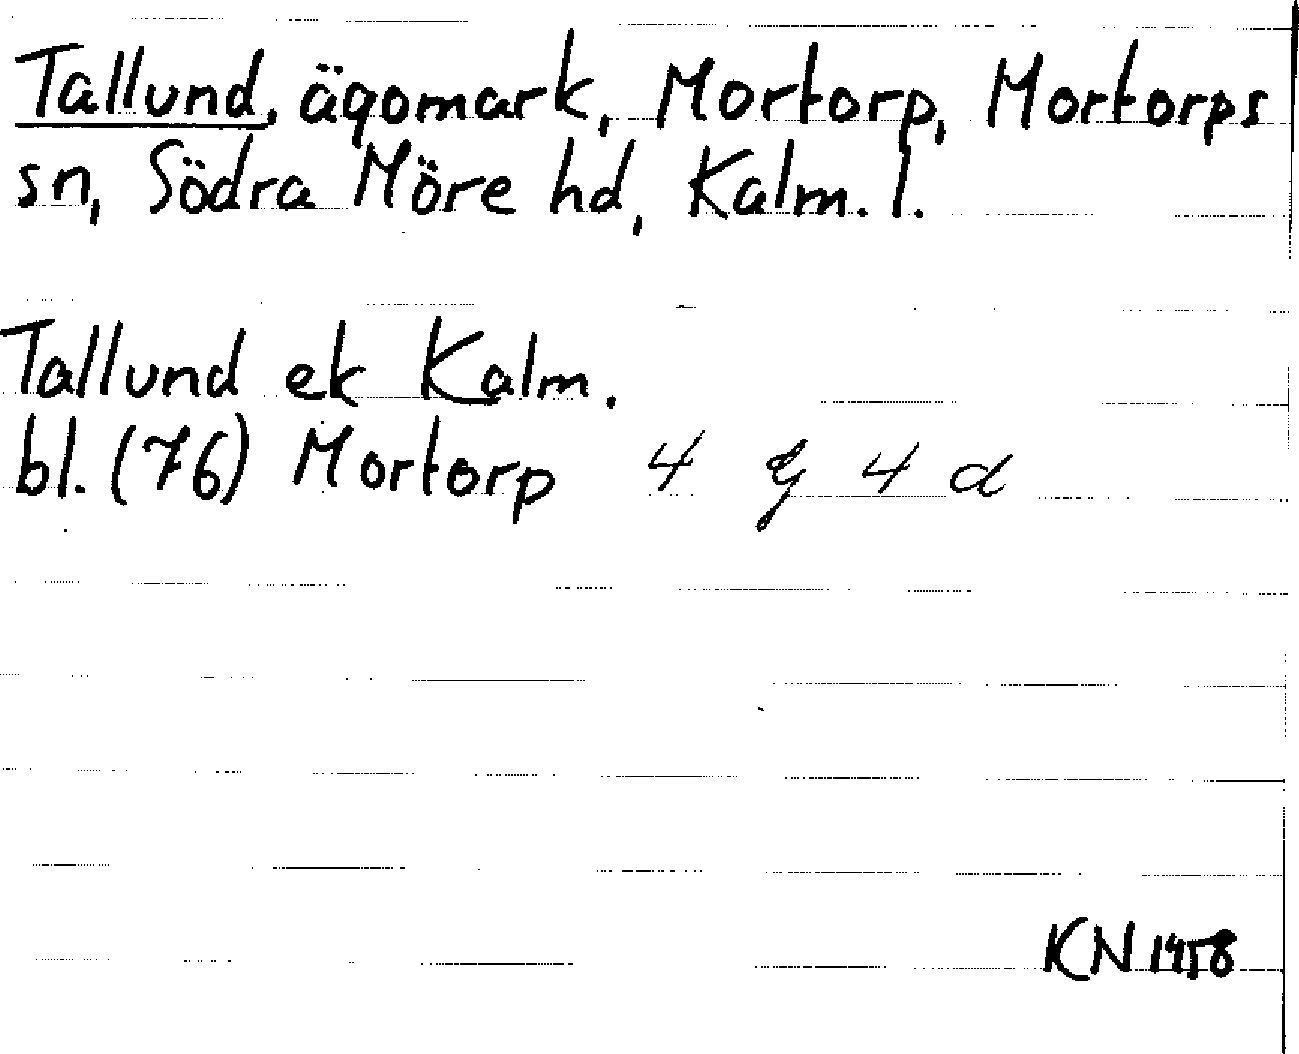 Tallund, ägomark, Mortorp, Mortorps
sn, Södra Möre hd, Kalm. l.
Tallund ek Kalm.
bl. (76) Mortorp 4 G 4 d
KN 1958